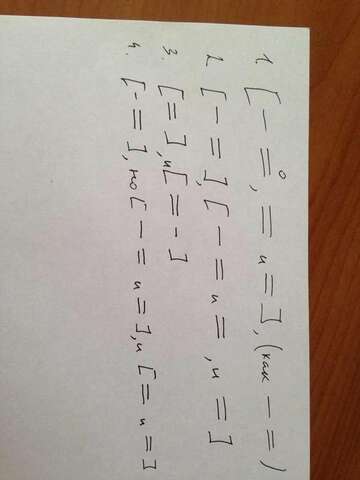 1. [ — =̊, = и = ], (как — = )
2. [ — = ], [ — = и =, и = ]
3. [ = ], и [ = — ]
4. [ — = ], но [ — = и = ], и [ = и = ]